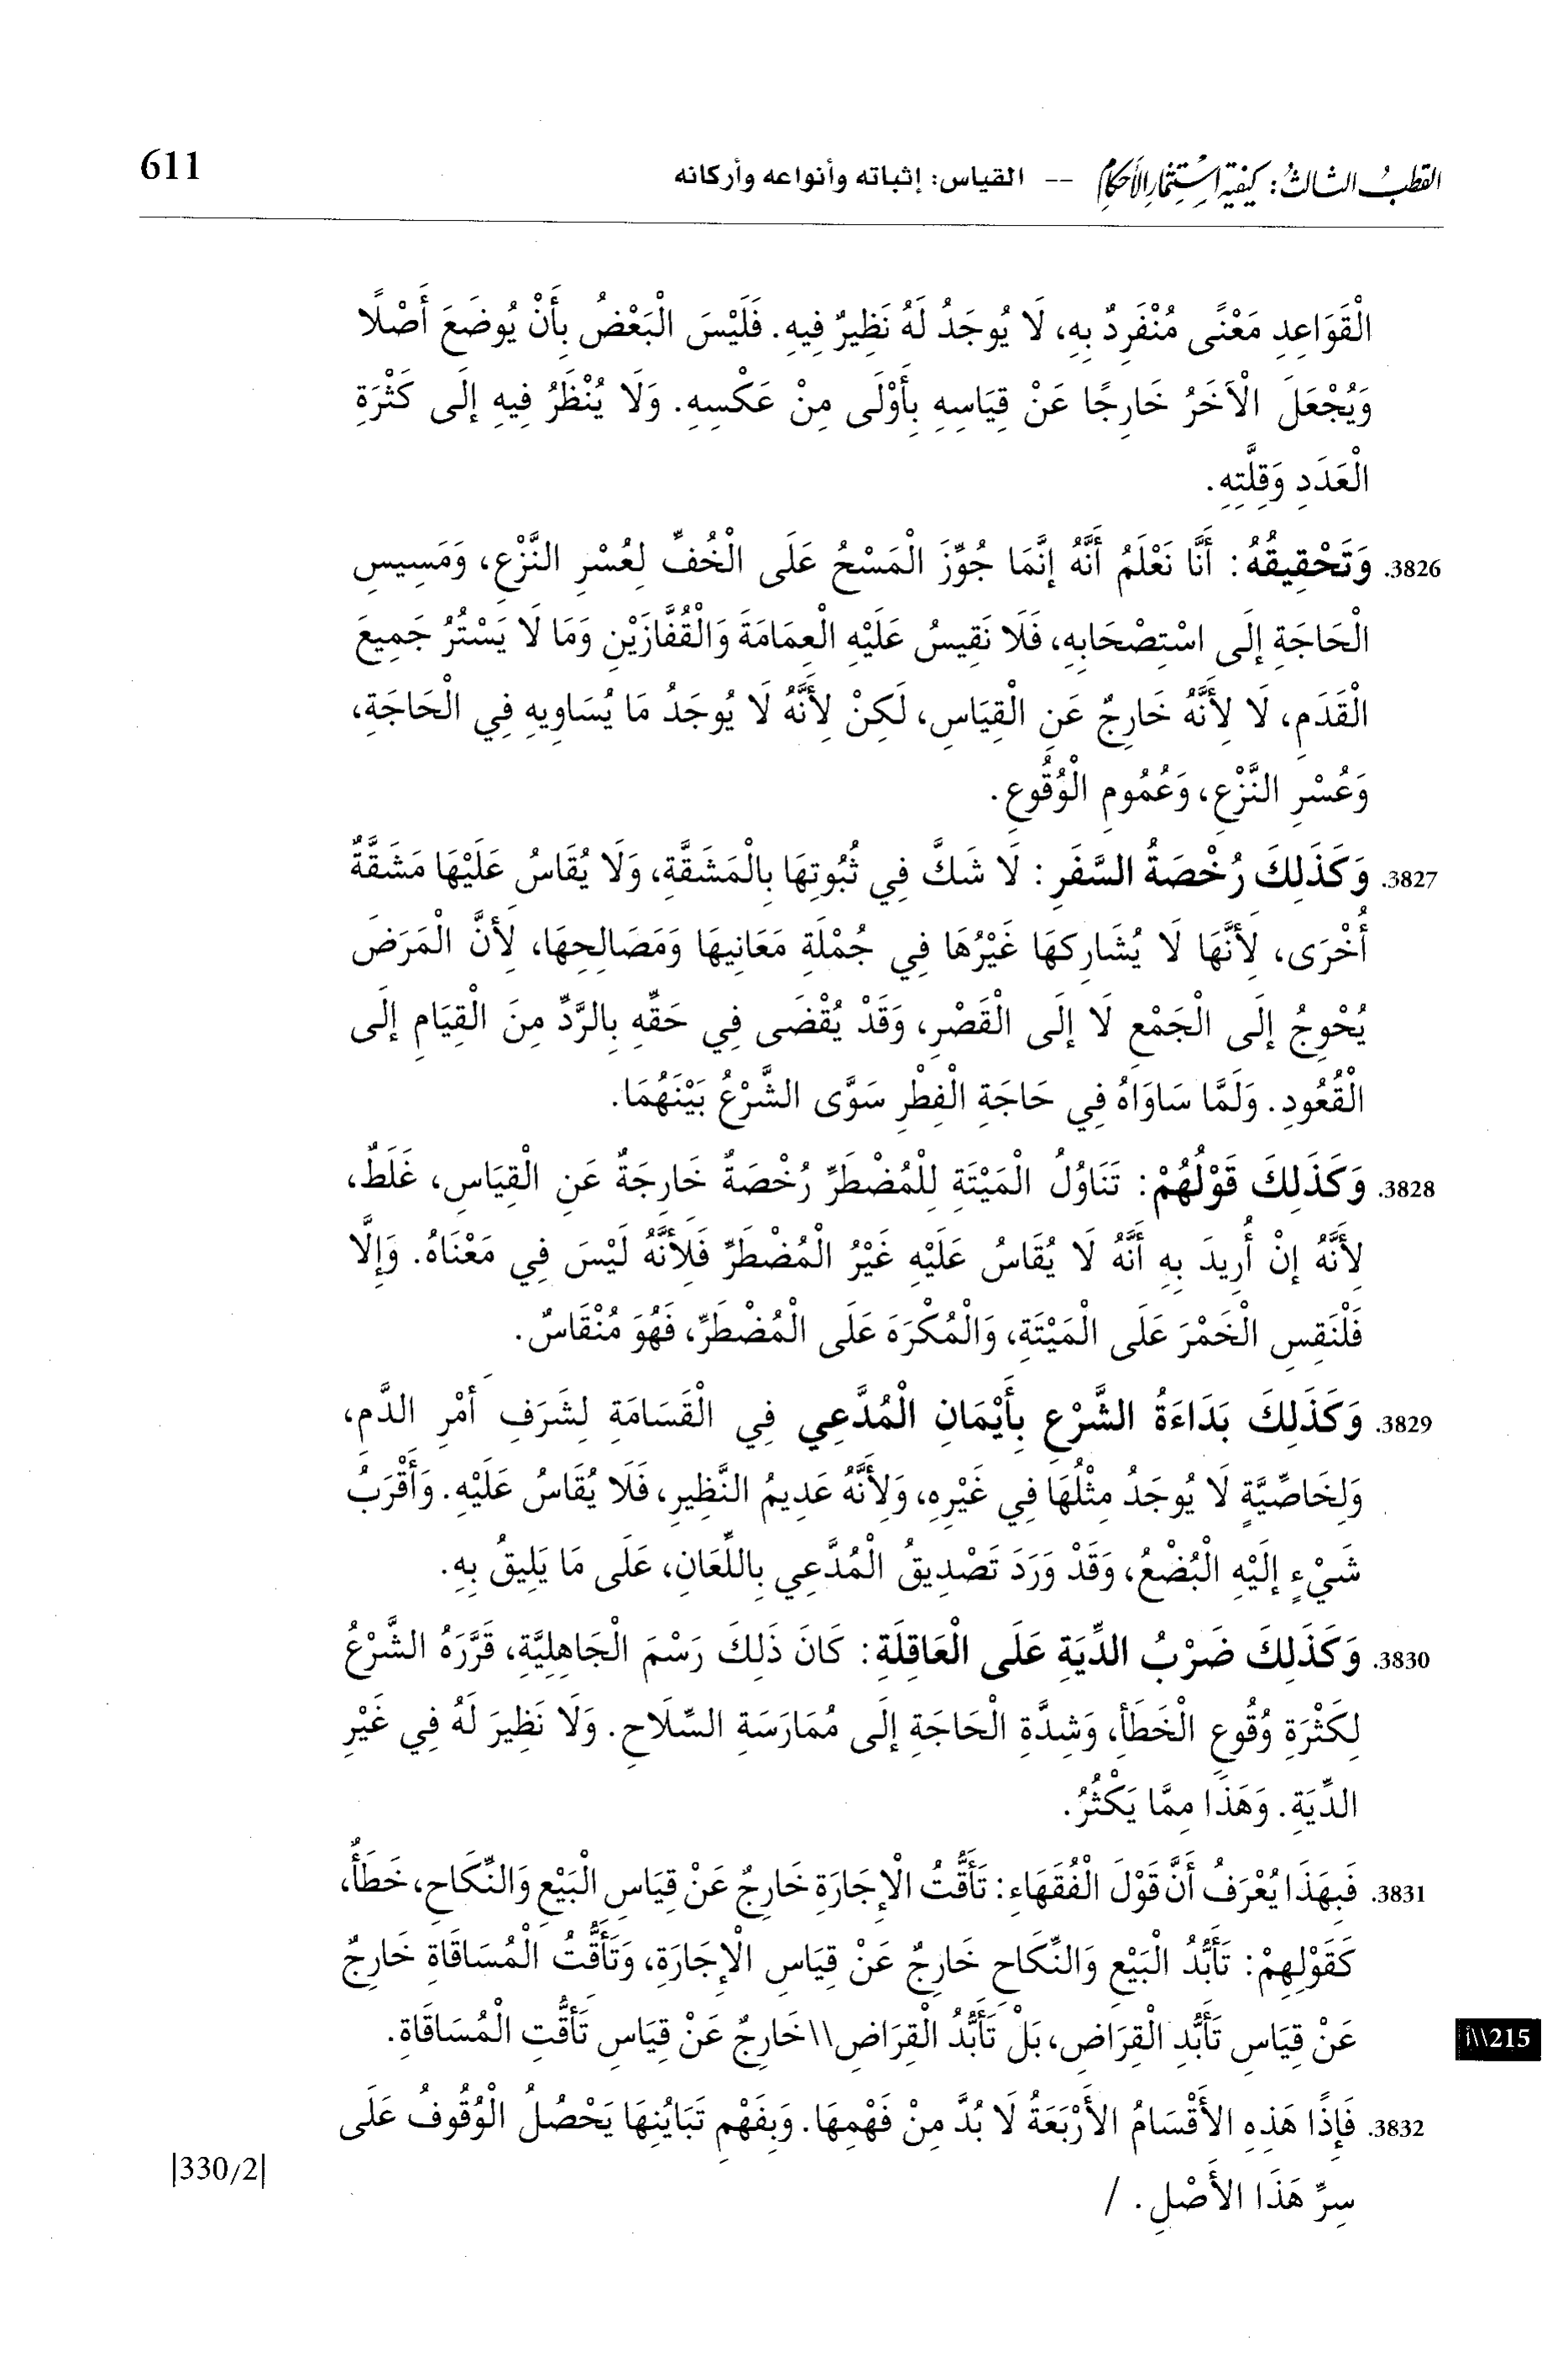 القطب الثالث: كيفية استثمار الأحكام -- القياس: إثباته وأنواعه وأركانه 611
الْقَوَاعِدِ مَعْنًى مُنْفَرِدٌ بِهِ، لَا يُوجَدُ لَهُ نَظِيرٌ فِيهِ. فَلَيْسَ الْبَعْضُ بِأَنْ يُوضَعَ أَصْلًا
وَيُجْعَلَ الْآخَرُ خَارِجًا عَنْ قِيَاسِهِ بِأَوْلَى مِنْ عَكْسِهِ. وَلَا يُنْظَرُ فِيهِ إِلَى كَثْرَةِ
الْعَدَدِ وَقِلَّتِهِ.
3826. وَتَحْقِيقُهُ: أَنَّا نَعْلَمُ أَنَّهُ إِنَّمَا جُوِّزَ الْمَسْحُ عَلَى الْخُفِّ لِعُسْرِ النَّزْعِ، وَمَسِيسِ
الْحَاجَةِ إِلَى اسْتِصْحَابِهِ، فَلَا نَقِيسُ عَلَيْهِ الْعِمَامَةَ وَالْقُفَّازَيْنِ وَمَا لَا يَسْتُرُ جَمِيعَ
الْقَدَمِ، لَا لِأَنَّهُ خَارِجٌ عَنِ الْقِيَاسِ، لَكِنْ لِأَنَّهُ لَا يُوجَدُ مَا يُسَاوِيهِ فِي الْحَاجَةِ،
وَعُسْرِ النَّزْعِ، وَعُمُومِ الْوُقُوعِ.
3827. وَكَذَلِكَ رُخْصَةُ السَّفَرِ: لَا شَكَّ فِي ثُبُوتِهَا بِالْمَشَقَّةِ، وَلَا يُقَاسُ عَلَيْهَا مَشَقَّةٌ
أُخْرَى، لِأَنَّهَا لَا يُشَارِكهَا غَيْرُهَا فِي جُمْلَةِ مَعَانِيهَا وَمَصَالِحِهَا، لِأَنَّ الْمَرَضَ
يُحْوِجُ إِلَى الْجَمْعِ لَا إِلَى الْقَصْرِ، وَقَدْ يُقْضَى فِي حَقِّهِ بِالرَّدِّ مِنَ الْقِيَامِ إِلَى
الْقُعُودِ. وَلَمَّا سَاوَاهُ فِي حَاجَةِ الْفِطْرِ سَوَّى الشَّرْعُ بَيْنَهُمَا.
3828. وَكَذَلِكَ قَوْلُهُمْ: تَنَاوُلُ الْمَيْتَةِ لِلْمُضْطَرِّ رُخْصَةٌ خَارِجَةٌ عَنِ الْقِيَاسِ، غَلَطٌ،
لِأَنَّهُ إِنْ أُرِيدَ بِهِ أَنَّهُ لَا يُقَاسُ عَلَيْهِ غَيْرُ الْمُضْطَرِّ فَلِأَنَّهُ لَيْسَ فِي مَعْنَاهُ. وَإِلَّا
فَلْنَقِسِ الْخَمْرَ عَلَى الْمَيْتَةِ، وَالْمُكْرَهَ عَلَى الْمُضْطَرِّ، فَهُوَ مُنْقَاسٌ.
3829. وَكَذَلِكَ بَدَاءَةُ الشَّرْعِ بِأَيْمَانِ الْمُدَّعِي فِي الْقَسَامَةِ لِشَرَفِ أَمْرِ الدَّمِ،
وَلِخَاصِّيَّةٍ لَا يُوجَدُ مِثْلُهَا فِي غَيْرِهِ، وَلِأَنَّهُ عَدِيمُ النَّظِيرِ، فَلَا يُقَاسُ عَلَيْهِ. وَأَقْرَبُ
شَيْءٍ إِلَيْهِ الْبُضْعُ، وَقَدْ وَرَدَ تَصْدِيقُ الْمُدَّعِي بِاللِّعَانِ، عَلَى مَا يَلِيقُ بِهِ.
3830. وَكَذَلِكَ ضَرْبُ الدِّيَةِ عَلَى الْعَاقِلَةِ: كَانَ ذَلِكَ رَسْمَ الْجَاهِلِيَّةِ، قَرَّرَهُ الشَّرْعُ
لِكَثْرَةِ وُقُوعِ الْخَطَأِ، وَشِدَّةِ الْحَاجَةِ إِلَى مُمَارَسَةِ السِّلَاحِ. وَلَا نَظِيرَ لَهُ فِي غَيْرِ
الدِّيَةِ. وَهَذَا مِمَّا يَكْثُرُ.
3831. فَبِهَذَا يُعْرَفُ أَنَّ قَوْلَ الْفُقَهَاءِ: تَأَقُّتُ الْإِجَارَةِ خَارِجٌ عَنْ قِيَاسِ الْبَيْعِ وَالنِّكَاحِ، خَطَأٌ،
كَقَوْلِهِمْ: تَأَبُّدُ الْبَيْعِ وَالنِّكَاحِ خَارِجٌ عَنْ قِيَاسِ الْإِجَارَةِ، وَتَأَقُّتُ الْمُسَاقَاةِ خَارِجٌ
عَنْ قِيَاسِ تَأَبُّدِ الْقِرَاضِ، بَلْ تَأَبُّدُ الْقِرَاضِ\\خَارِجٌ عَنْ قِيَاسِ تَأَقُّتِ الْمُسَاقَاةِ.
215\\أ
3832. فَإِذًا هَذِهِ الأَقْسَامُ الأَرْبَعَةُ لَا بُدَّ مِنْ فَهْمِهَا. وَبِفَهْمِ تَبَايُنِهَا يَحْصُلُ الْوُقُوفُ عَلَى
سِرِّ هَذَا الأَصْلِ. /
|330/2|